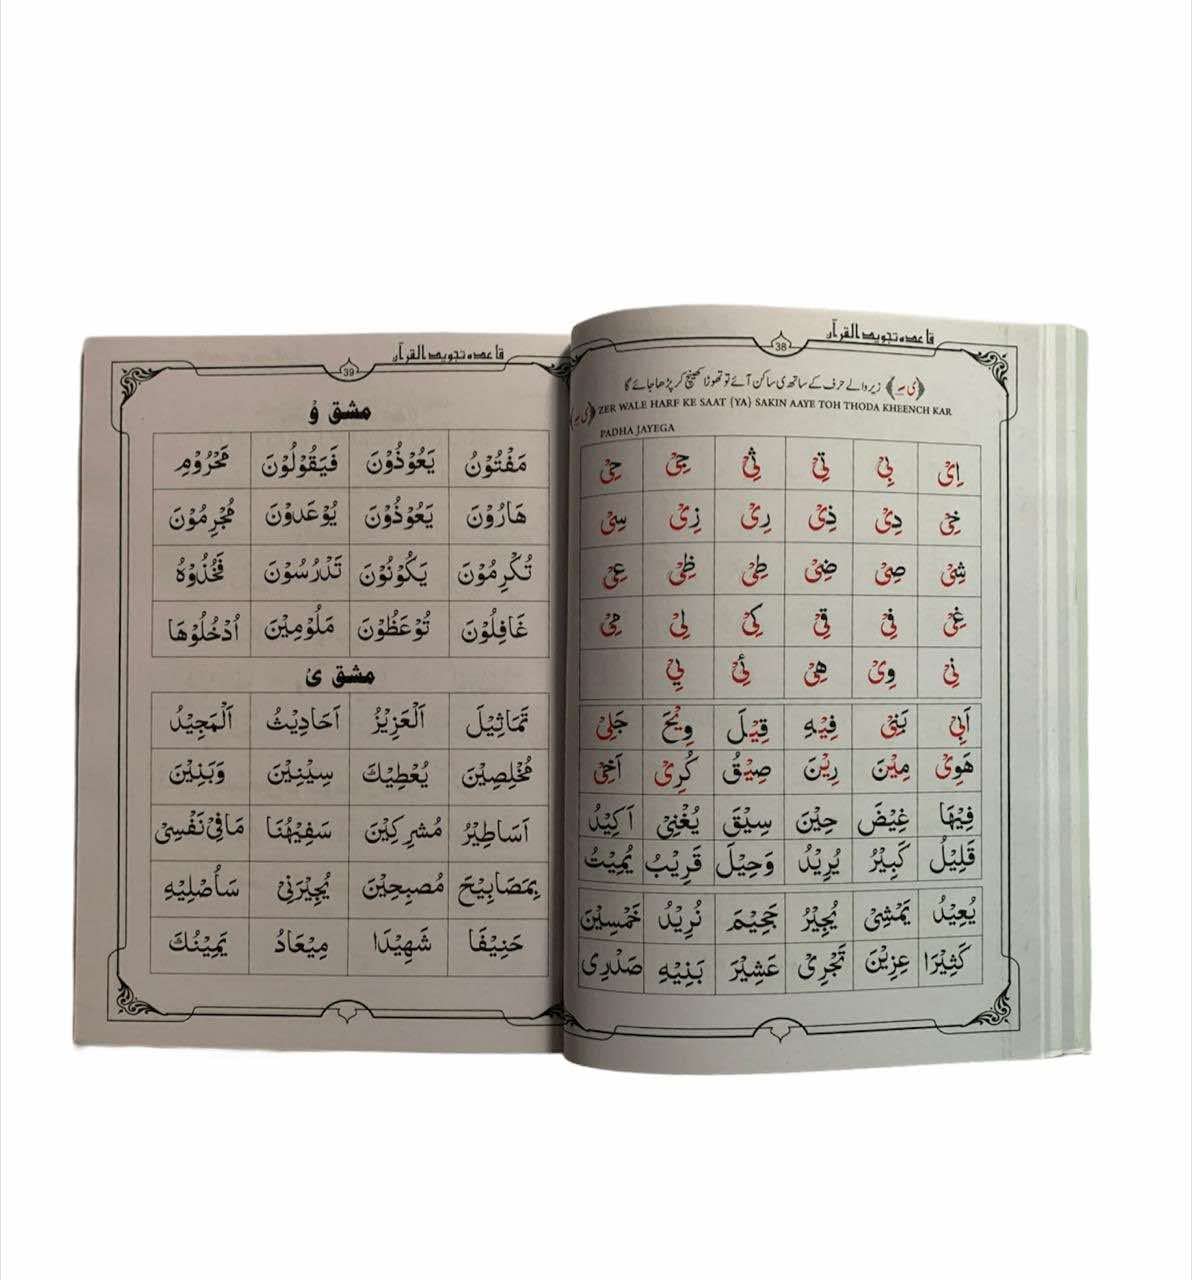 38
قاعدہ تجوید القرآن
﴿ی ◌ِ﴾ زیر والے حرف کے ساتھ ی ساکن آئے تو تھوڑا کھینچ کر پڑھا جائے گا
﴿ی ◌ِ﴾ ZER WALE HARF KE SAAT (YA) SAKIN AAYE TOH THODA KHEENCH KAR
PADHA JAYEGA
اِیْ بِیْ تِیْ ثِیْ جِیْ حِیْ
خِیْ دِیْ ذِیْ رِیْ زِیْ سِیْ
شِیْ صِیْ ضِیْ طِیْ ظِیْ عِیْ
غِیْ فِیْ قِیْ کِیْ لِیْ مِیْ
نِیْ وِیْ هِیْ ئِیْ یِیْ
اَبِیْ بَنِیْ فِیْهِ قِیْلَ وِیْحَ جَلِیْ
هَوِیْ مِیْنَ رِیْنَ صِیْقُ کُرِیْ اَخِیْ
فِیْهَا غِیْضَ حِیْنَ سِیْقَ یُغْنِیْ اَکِیْدُ
قَلِیْلُ کَبِیْرُ یُرِیْدُ وَحِیْلَ قَرِیْبُ یُمِیْتُ
یُعِیْدُ یَمْشِیْ یُجِیْرُ جَحِیْمَ نُرِیْدُ خَمْسِیْنَ
کَثِیْرَا عِزِیْنَ تَجْرِیْ عَشِیْرَ بَنِیْهِ صَدْرِی
39
قاعدہ تجوید القرآن
مشق وْ
مَفْتُوْنُ یَعُوْذُوْنَ فَیَقُوْلُوْنَ مَحْرُوْمِ
هَارُوْنَ یَعُوْذُوْنَ یُوْعَدُوْنَ مُجْرِمُوْنَ
تُکْرِمُوْنَ یَکُوْنُوْنَ تَدْرُسُوْنَ فَخُذُوْهُ
غَافِلُوْنَ تُوْعَظُوْنَ مَلُوْمِیْنَ اُدْخُلُوْهَا
مشق یْ
تَمَاثِیْلَ اَلْعَزِیْزُ اَحَادِیْثُ اَلْمَجِیْدُ
مُخْلِصِیْنَ یُعْطِیْكَ سِیْنِیْنَ وَبَنِیْنَ
اَسَاطِیْرُ مُشْرِکِیْنَ سَفِیْهُنَا مَافِیْ نَفْسِیْ
بِمَصَابِیْحَ مُصْبِحِیْنَ یُجِیْرَنِیْ سَاُصْلِیْهِ
حَنِیْفَا شَهِیْدَا مِیْعَادُ یَمِیْنُكَ